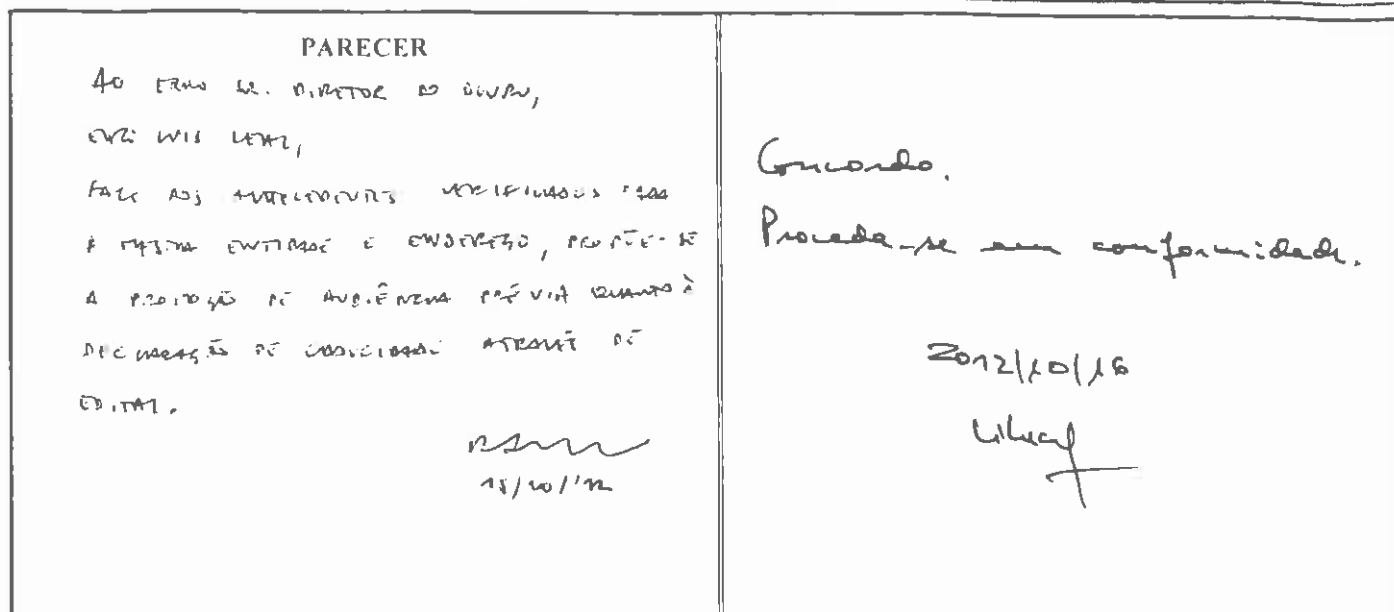 PARECER
AO EXMO SR. DIRETOR DO
ENGº LUIS LEAL,
FACE AOS ANTECEDENTES VERIFICADOS PARA
A MESMA ENTIDADE E ENDEREÇO, PROPÕE-SE
A PROMOÇÃO DE AUDIÊNCIA PRÉVIA QUANTO À
DECLARAÇÃO DE CADUCIDADE ATRAVÉS DE
EDITAL.
15/10/'12
Concordo.
Proceda-se em conformidade.
2012/10/16